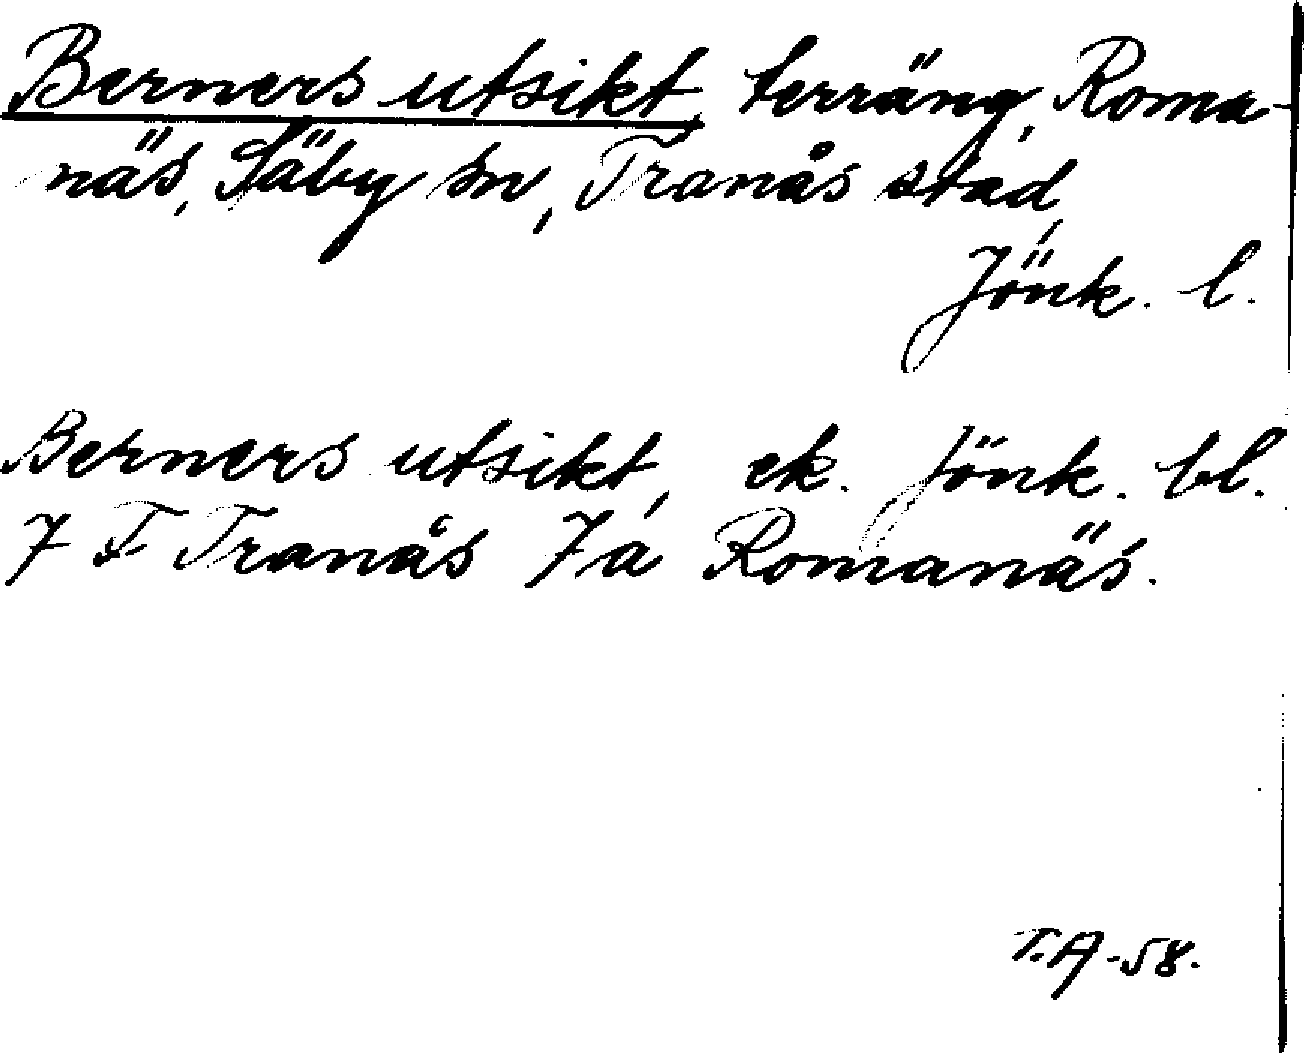 Berners utsikt, terräng, Roma-
näs, Säby sn, Tranås stad,
Jönk. l.
Berners utsikt, ek. Jönk. bl.
7 F Tranås 7a Romanäs.
T.A-58.